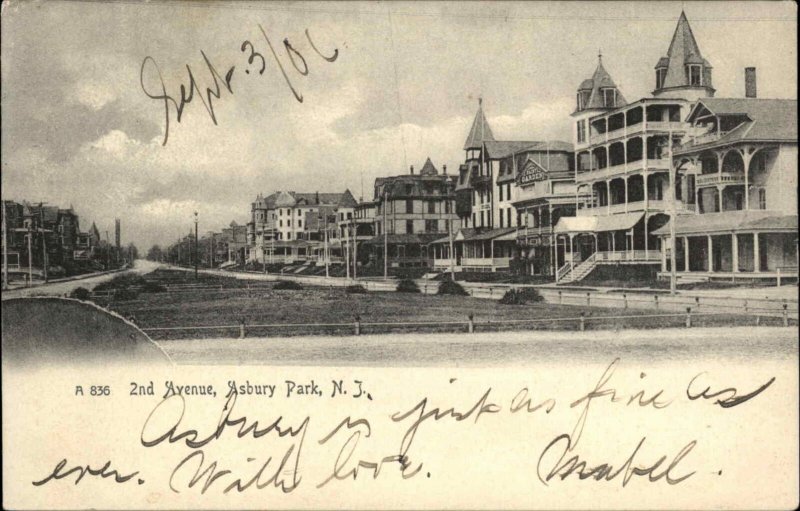 Sept. 3/06
GARDEN
A 836 2nd Avenue, Asbury Park, N. J.
Asbury is just as fine as
ever. With love. Mabel.